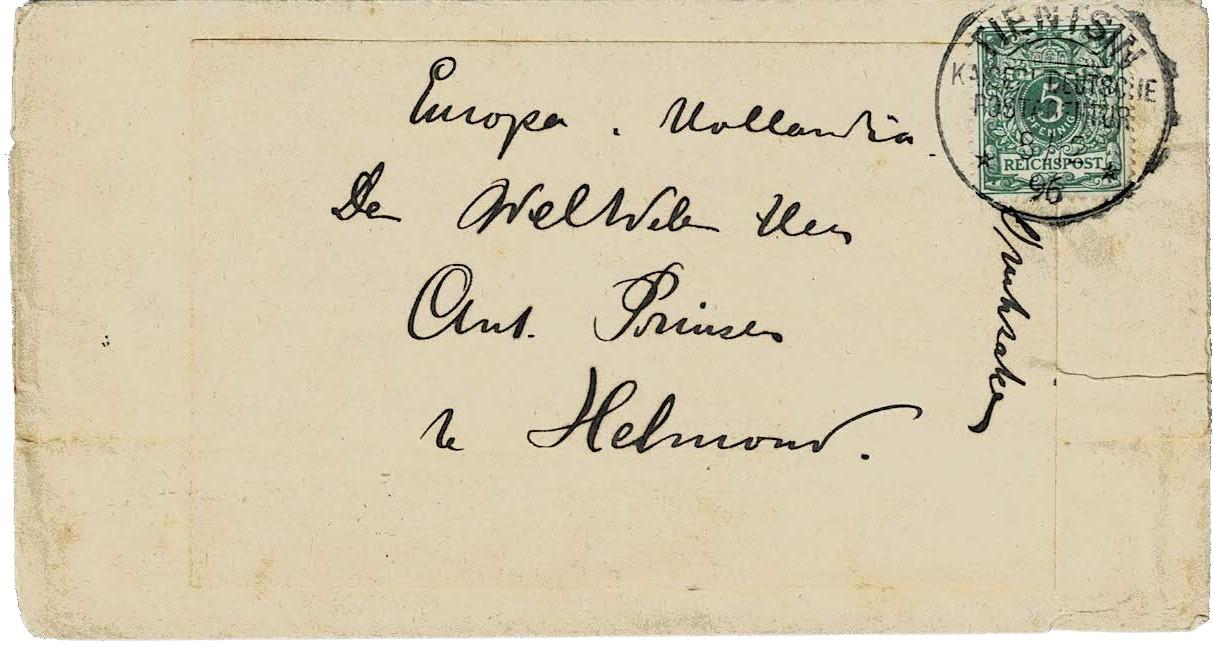 Europa. Hollandia.
Den WelEdelen Heer
Ant. Prinsen
te Helmond.
Drukzaken
TIENTSIN
KAISERL. DEUTSCHE
POSTAGENTUR
96
5
PFENNIG
REICHSPOST